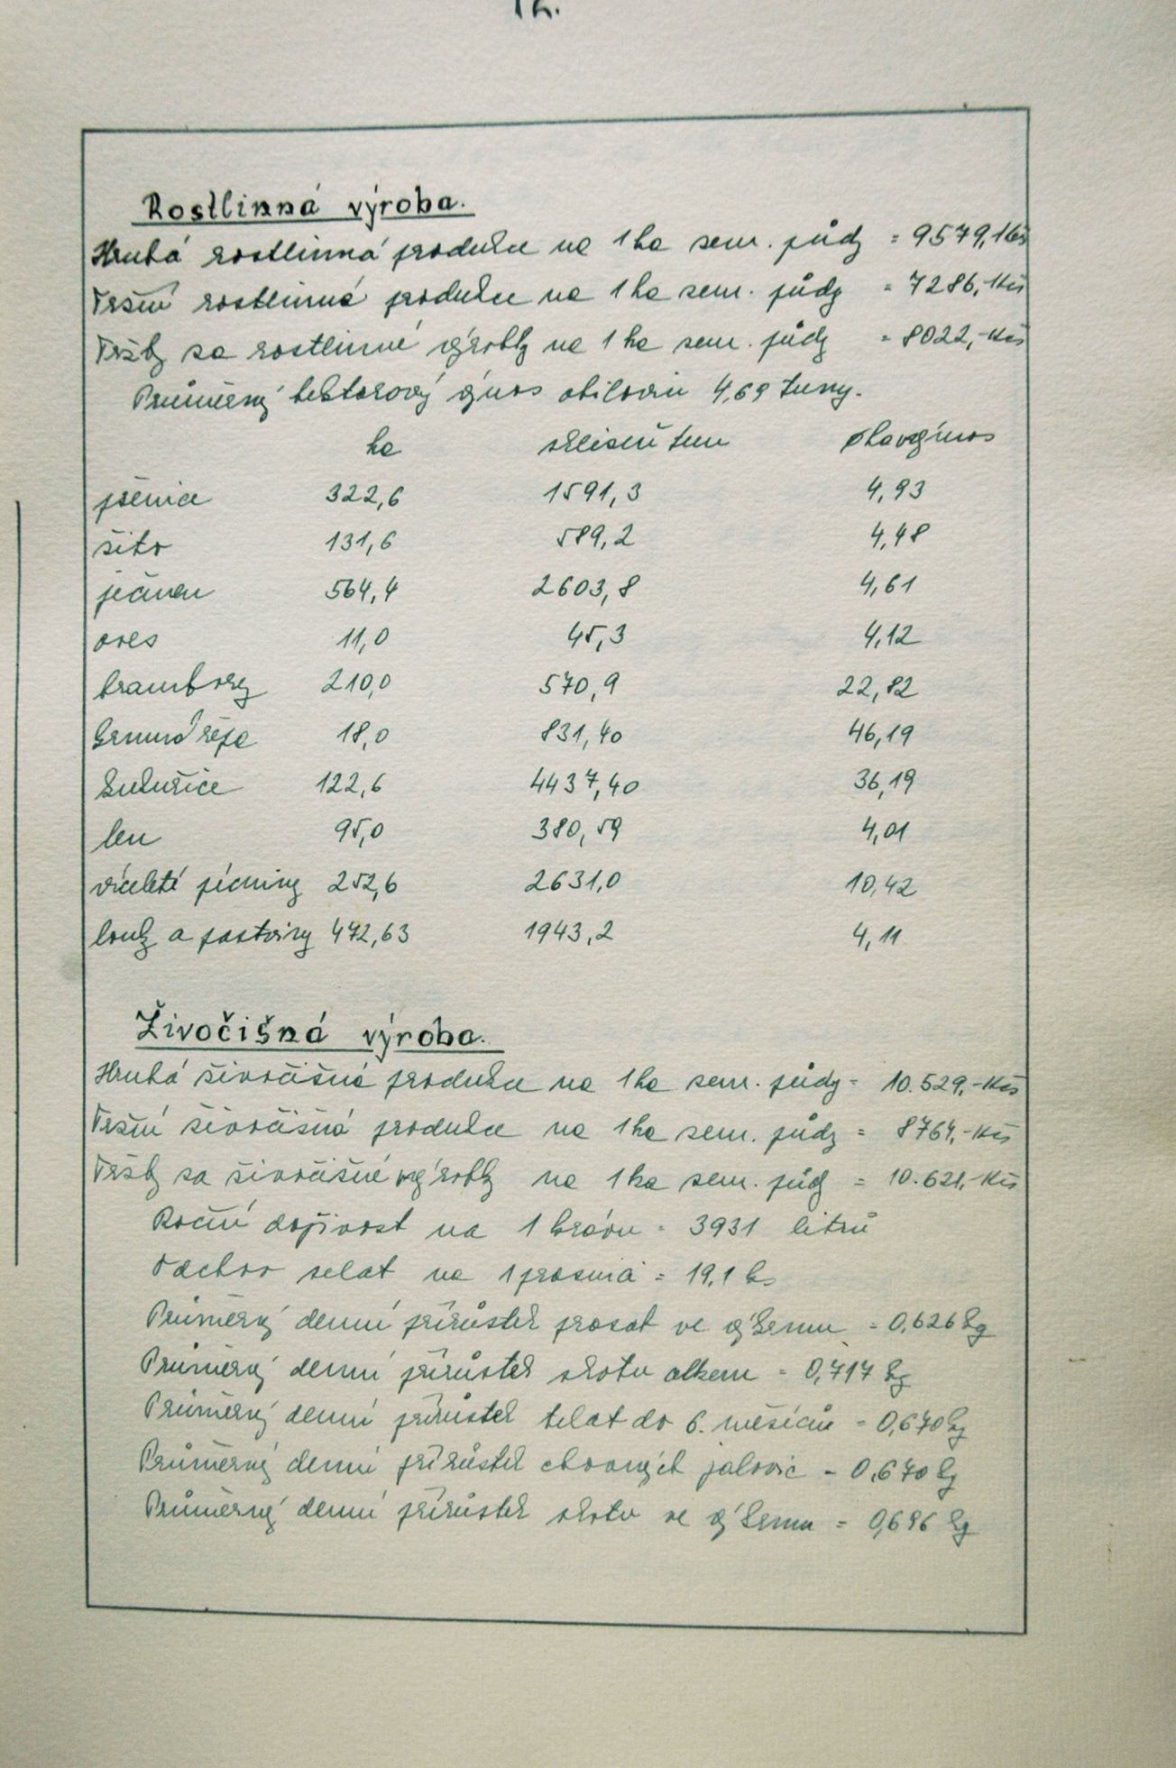 12.
Rostlinná výroba.
Hrubá rostlinná produkce na 1 ha zem. půdy = 9579,-Kčs
Tržní rostlinná produkce na 1 ha zem. půdy = 7286,-Kčs
Tržby za rostlinné výrobky na 1 ha zem. půdy = 8022,-Kčs
Průměrný hektarový výnos obilovin 4,69 tuny.
ha sklizeň tun ø ha výnos
pšenice 322,6 1591,3 4,93
žito 131,6 589,2 4,48
ječmen 564,4 2603,8 4,61
oves 11,0 45,3 4,12
brambory 210,0 570,9 22,82
krmná řepa 18,0 831,40 46,19
kukuřice 122,6 4437,40 36,19
len 95,0 380,59 4,01
víceleté pícniny 252,6 2631,0 10,42
louky a pastviny 472,63 1943,2 4,11
Živočišná výroba.
Hrubá živočišná produkce na 1 ha zem. půdy = 10.529,-Kčs
Tržní živočišná produkce na 1 ha zem. půdy = 8764,-Kčs
Tržby za živočišné výrobky na 1 ha zem. půdy = 10.621,-Kčs
Roční dojivost na 1 krávu = 3931 litrů
Odchov selat na 1 prasnici = 19,1 ks
Průměrný denní přírůstek prasat ve výkrmu = 0,626 kg
Průměrný denní přírůstek skotu celkem = 0,717 kg
Průměrný denní přírůstek telat do 6. měsíců = 0,670 kg
Průměrný denní přírůstek chovných jalovic = 0,670 kg
Průměrný denní přírůstek skotu ve výkrmu = 0,686 kg